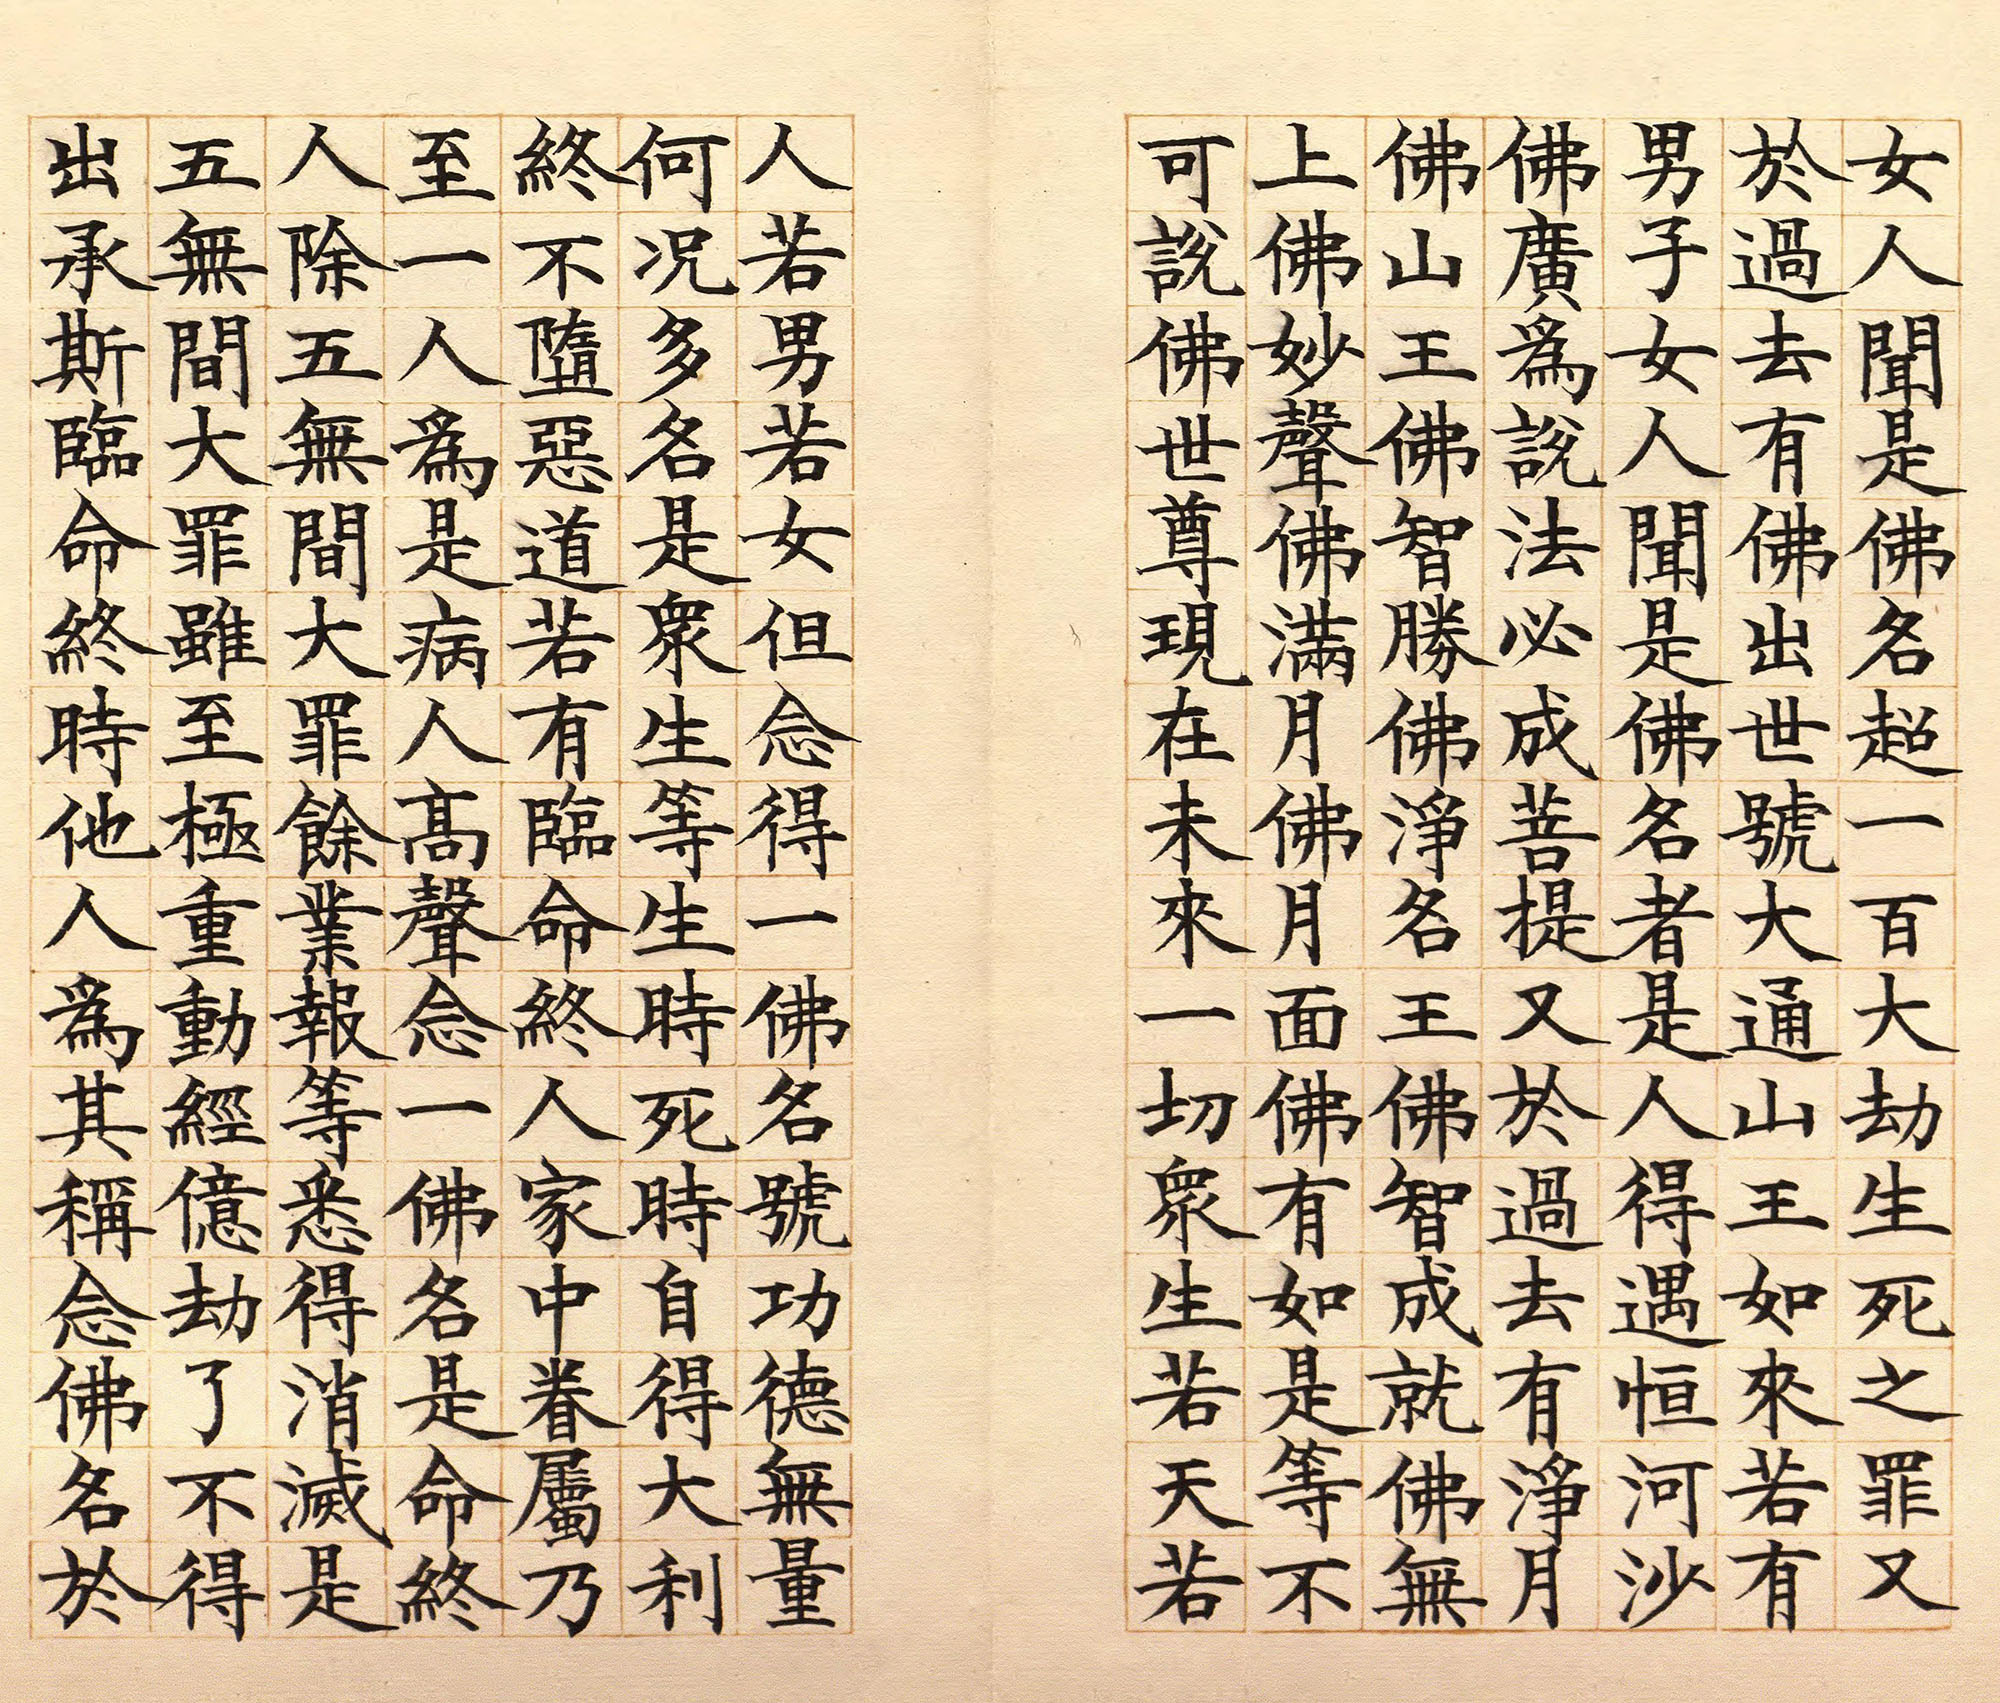 女人聞是佛名超一百大劫生死之罪又
於過去有佛出世號大通山王如來若有
男子女人聞是佛名者是人得遇恒河沙
佛廣爲說法必成菩提又於過去有淨月
佛山王佛智勝佛淨名王佛智成就佛無
上佛妙聲佛滿月佛月面佛有如是等不
可說佛世尊現在未來一切衆生若天若
人若男若女但念得一佛名號功德無量
何况多名是衆生等生時死時自得大利
終不墮惡道若有臨命終人家中眷屬乃
至一人爲是病人高聲念一佛名是命終
人除五無間大罪餘業報等悉得消滅是
五無間大罪雖至極重動經億劫了不得
出承斯臨命終時他人爲其稱念佛名於